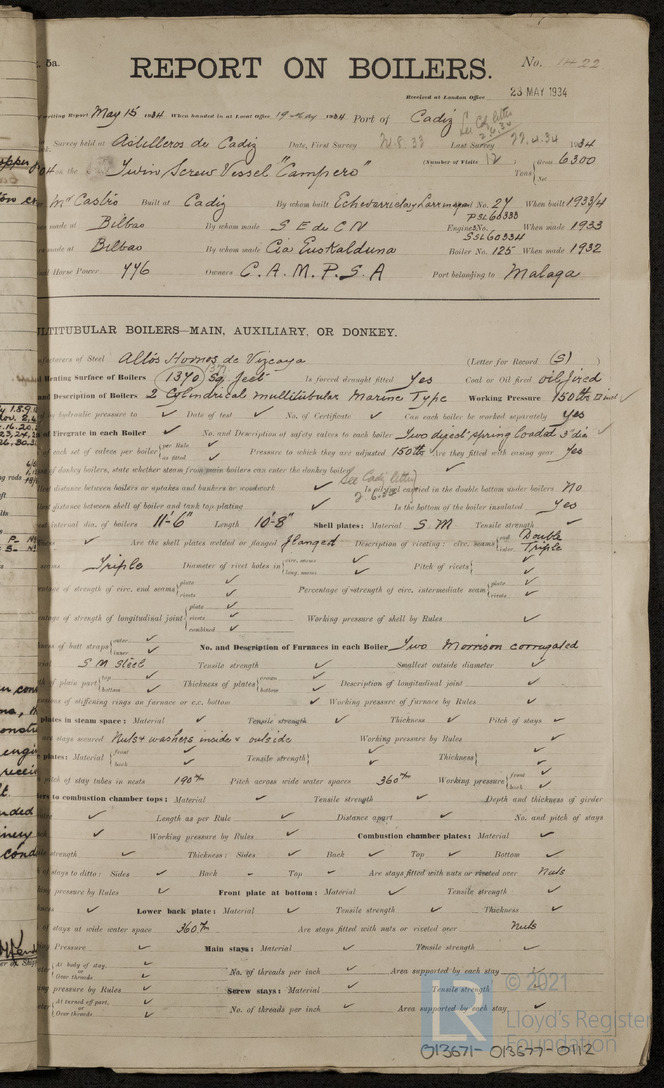 5a.
REPORT ON BOILERS. No. 1422
Received at London Office 23 MAY 1934
writing Report May 15 1934 When handed in at Local Office 19 May 1934 Port of Cadiz See Cdz letter 2.6.34
Survey held at Astilleros de Cadiz Date, First Survey 21.8.33 Last Survey 27.4.34 1934
on the Twin Screw Vessel "Campero" (Number of Visits 12) Tons { Gross 6300 Net
Mat Castro Built at Cadiz By whom built Echevarrieta y Larrinaga Yard No. 27 When built 1933/4
made at Bilbao By whom made S E de C N Engine No. PSL60333 SSL60334 When made 1933
made at Bilbao By whom made Cia Euskalduna Boiler No. 125 When made 1932
Horse Power 776 Owners C. A. M. P. S. A Port belonging to Malaga
MULTITUBULAR BOILERS—MAIN, AUXILIARY, OR DONKEY.
Manufacturers of Steel Altos Hornos de Vizcaya (Letter for Record (S) )
Heating Surface of Boilers (1370) Sq. feet Is forced draught fitted Yes Coal or Oil fired oil fired
and Description of Boilers 2 Cylindrical multitubular Marine Type Working Pressure 150 lbs □ inch
by hydraulic pressure to ✓ Date of test ✓ No. of Certificate ✓ Can each boiler be worked separately Yes
of Firegrate in each Boiler ✓ No. and Description of safety valves to each boiler Two direct spring loaded 3" dia ✓
of each set of valves per boiler { per Rule ✓ as fitted ✓ Pressure to which they are adjusted 150 lbs Are they fitted with easing gear Yes
of donkey boilers, state whether steam from main boilers can enter the donkey boiler ✓
distance between boilers or uptakes and bunkers or woodwork ✓ See Cadiz letter 2.6.34 Is oil fuel carried in the double bottom under boilers No
distance between shell of boiler and tank top plating ✓ Is the bottom of the boiler insulated Yes
internal dia. of boilers 11'-6" Length 10'-8" Shell plates: Material S M Tensile strength ✓
✓ Are the shell plates welded or flanged flanged Description of riveting: circ. seams { end Double inter. Triple
seams Triple Diameter of rivet holes in { circ. seams ✓ long. seams ✓ Pitch of rivets { ✓ ✓
percentage of strength of circ. end seams { plate ✓ rivets ✓ Percentage of strength of circ. intermediate seam { plate ✓ rivets ✓
percentage of strength of longitudinal joint { plate ✓ rivets ✓ combined ✓ Working pressure of shell by Rules ✓
of butt straps { outer ✓ inner ✓ No. and Description of Furnaces in each Boiler Two Morrison corrugated
S M Steel Tensile strength ✓ Smallest outside diameter ✓
of plain part { top ✓ bottom ✓ Thickness of plates { crown ✓ bottom ✓ Description of longitudinal joint ✓
of stiffening rings on furnace or c.c. bottom ✓ Working pressure of furnace by Rules ✓
plates in steam space: Material ✓ Tensile strength ✓ Thickness ✓ Pitch of stays ✓
are stays secured Nuts & washers inside & outside Working pressure by Rules ✓
plates: Material { front ✓ back ✓ Tensile strength { ✓ ✓ Thickness { ✓ ✓
pitch of stay tubes in nests 190 m/m Pitch across wide water spaces 360 m/m Working pressure { front ✓ back ✓
to combustion chamber tops: Material ✓ Tensile strength ✓ Depth and thickness of girder
✓ Length as per Rule ✓ Distance apart ✓ No. and pitch of stays
✓ Working pressure by Rules ✓ Combustion chamber plates: Material ✓
strength ✓ Thickness: Sides ✓ Back ✓ Top ✓ Bottom ✓
of stays to ditto: Sides ✓ Back - Top ✓ Are stays fitted with nuts or riveted over Nuts
pressure by Rules ✓ Front plate at bottom: Material ✓ Tensile strength ✓
✓ Lower back plate: Material ✓ Tensile strength ✓ Thickness ✓
of stays at wide water space 360 m/m Are stays fitted with nuts or riveted over Nuts
Pressure ✓ Main stays: Material ✓ Tensile strength ✓
{ At body of stay, or Over threads ✓ No. of threads per inch ✓ Area supported by each stay ✓
pressure by Rules ✓ Screw stays: Material ✓ Tensile strength ✓
{ At turned off part, or Over threads ✓ No. of threads per inch ✓ Area supported by each stay ✓
LR © 2021
Lloyd's Register
Foundation
013671-013677-0112